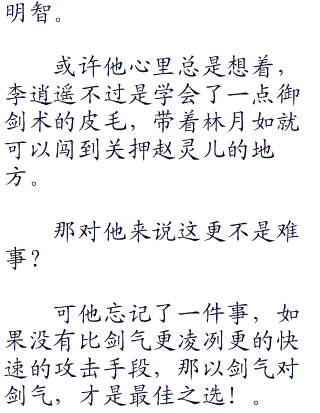 明智。
或许他心里总是想着，
李逍遥不过是学会了一点御
剑术的皮毛，带着林月如就
可以闯到关押赵灵儿的地
方。
那对他来说这更不是难
事？
可他忘记了一件事，如
果没有比剑气更凌冽更的快
速的攻击手段，那以剑气对
剑气，才是最佳之选！。